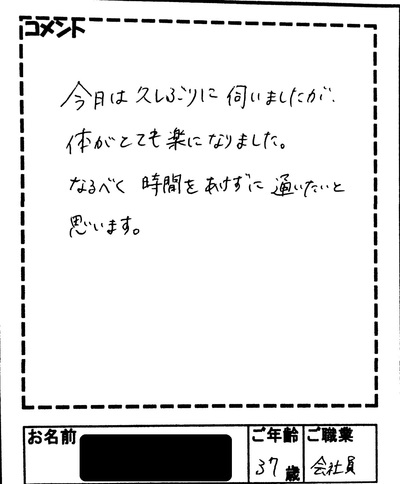 コメント
今日は久しぶりに伺いましたが、
体がとても楽になりました。
なるべく時間をあけずに通いたいと
思います。
お名前
ご年齢
ご職業
37歳
会社員